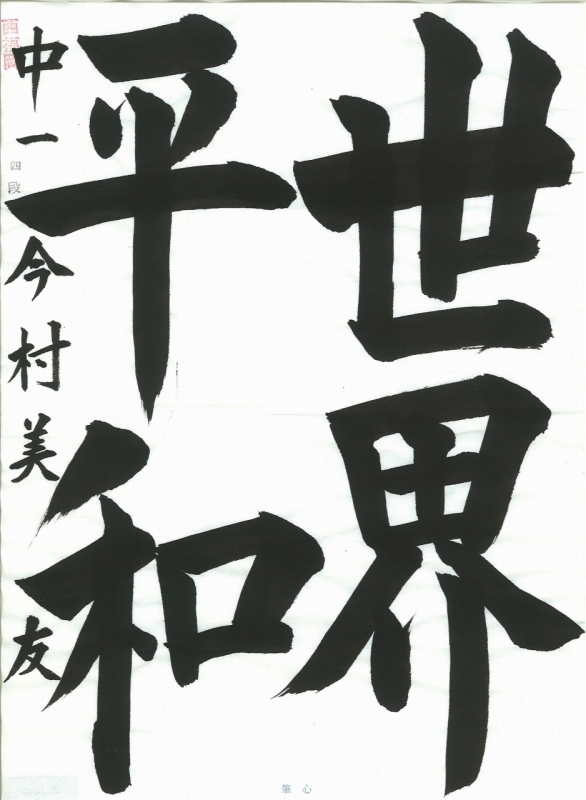 世界
平和
中一 四段 今村美友
筆心